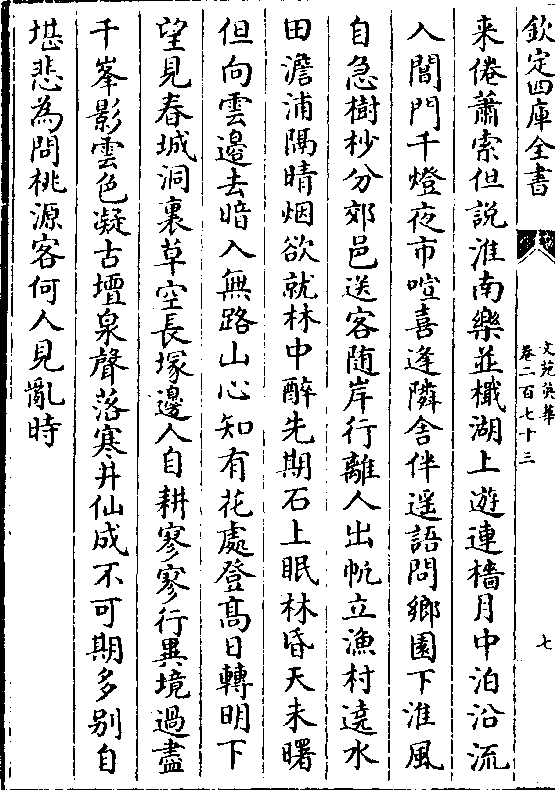 欽定四庫全書
文苑英華
卷二百七十三
七
来倦蕭索但説淮南樂並檝湖上遊連檣月中泊沿流
入閶門千燈夜市喧喜逢隣舍伴遥語問鄉園下淮風
自急樹杪分郊邑送客随岸行離人出㠶立漁村逺水
田澹浦隅晴烟欲就林中醉先期石上眠林昏天未曙
但向雲邉去暗入無路山心知有花處登髙日轉明下
望見春城洞裏草空長塚邊人自耕寥寥行異境過盡
千峯影雲色凝古壇泉聲落寒井仙成不可期多别自
堪悲為問桃源客何人見亂時